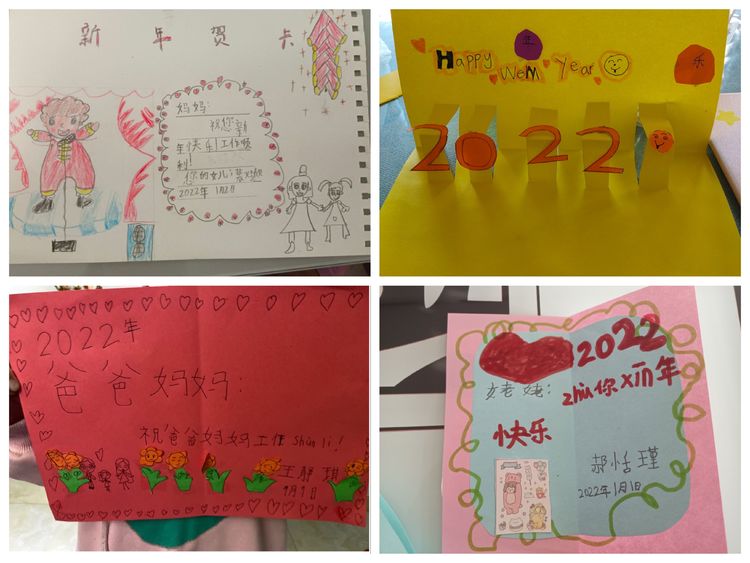 新年贺卡
妈妈:
祝您新
年快乐!工作顺
利!
您的女儿:
2022年1月2日
Happy
WeM Year
乐
2022
2022年
爸爸妈妈:
祝爸爸妈妈工作Shùn lì!
王静琪
1月1日
2022
zhù你xīn年
姥姥:
快乐
郝恬瑾
2022年1月1日